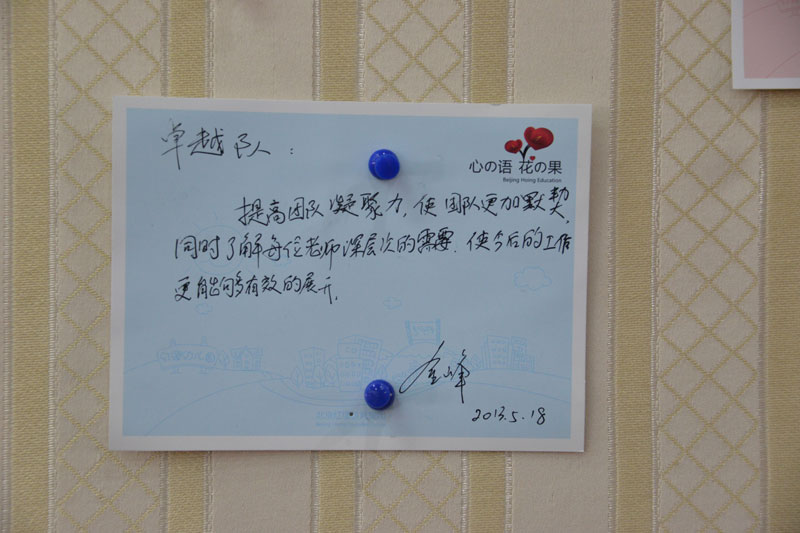 卓越队：
心の语 花の果
Beijing Hsing Education
提高团队凝聚力，使团队更加默契，
同时了解每位老师深层次的需要，使今后的工作
更能够有效的展开。
金峰
2013.5.18